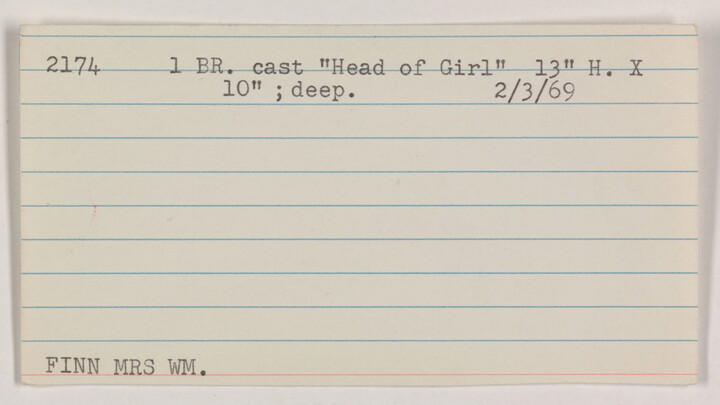 2174 1 BR. cast "Head of Girl" 13" H. X
10" ; deep. 2/3/69
FINN MRS WM.